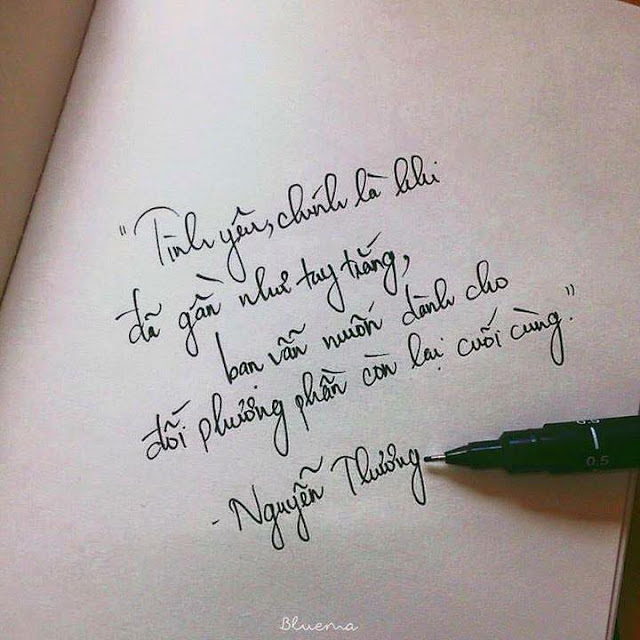 "Tình yêu, chính là khi
đã gần như tay trắng,
bạn vẫn muốn dành cho
đối phương phần còn lại cuối cùng."
- Nguyễn Thương
0.5
Bluema